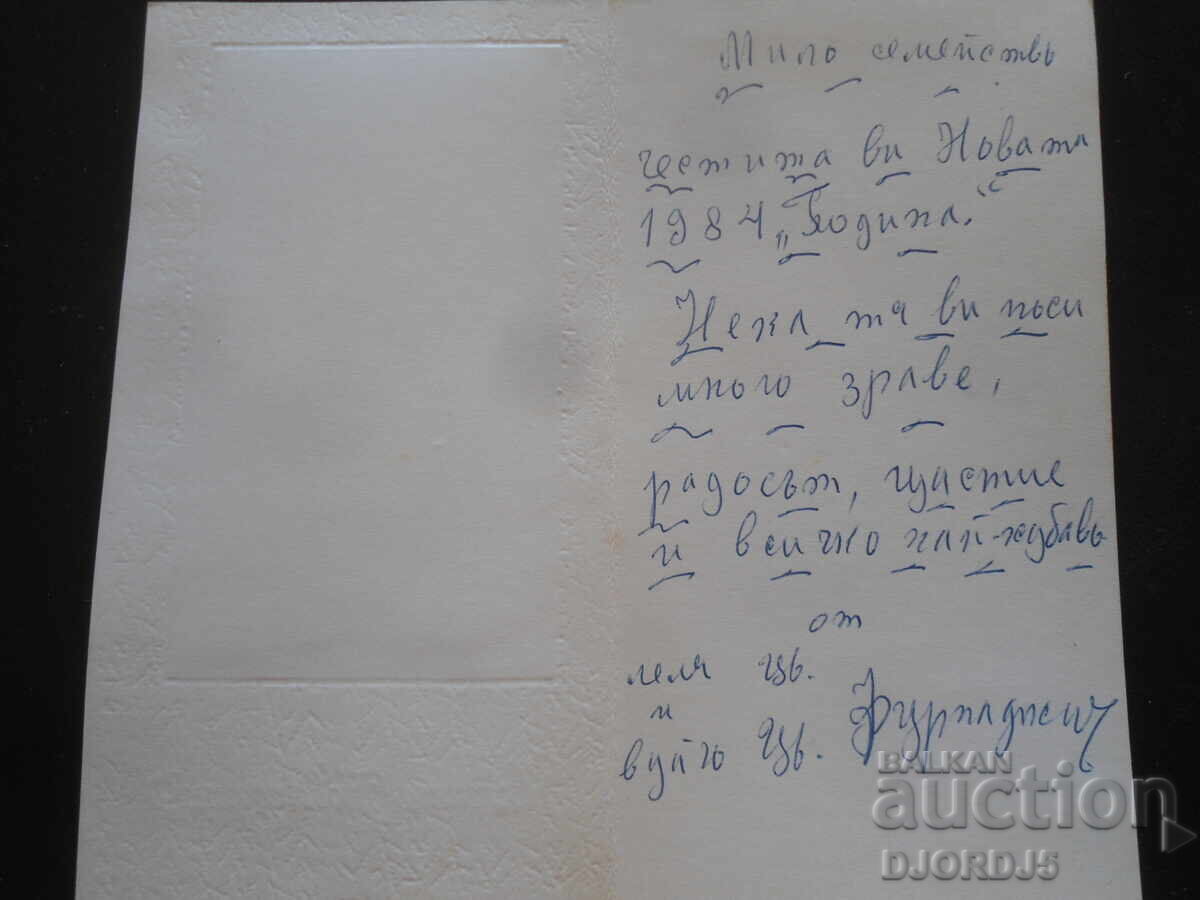 Мило семейство
честита ви Новата
1984 „Година.“
Нека тя ви носи
много здраве,
радостъ, щастие
и всичко най-хубаво
от
леля Цв.
и
вуйчо Цв. Фурнаджии
BALKAN
auction
DJORDJ5